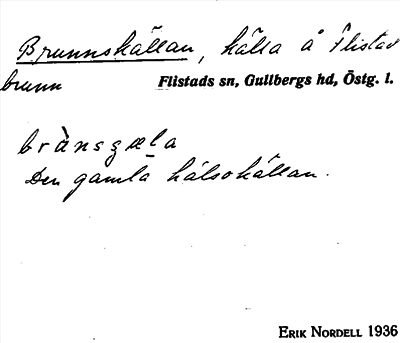 Brunnskällan, källa å Flistad
brunn Flistads sn, Gullbergs hd, Östg. l.
brànsȥæla
Den gamla hälsokällan.
ERIK NORDELL 1936